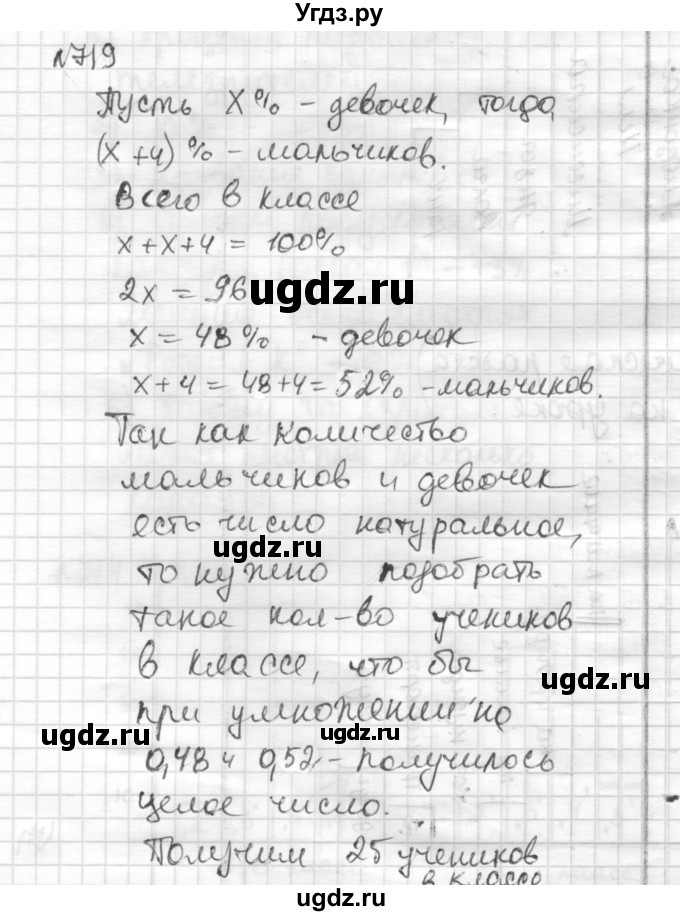 Угдз.ру
№719
Пусть x% - девочек, тогда
(x+4)% - мальчиков.
Всего в классе
x+x+4 = 100%
2x = 96
ugdz.ru
x = 48% - девочек
x+4 = 48+4 = 52% - мальчиков.
Так как количество
мальчиков и девочек
есть число натуральное,
ugdz.ru
то нужно подобрать
такое кол-во учеников
в классе, что бы
ugdz.ru
при умножении на
ugdz.ru
ugdz.ru
0,48 и 0,52 - получилось
целое число.
Получим 25 учеников
в классе
ugdz.ru